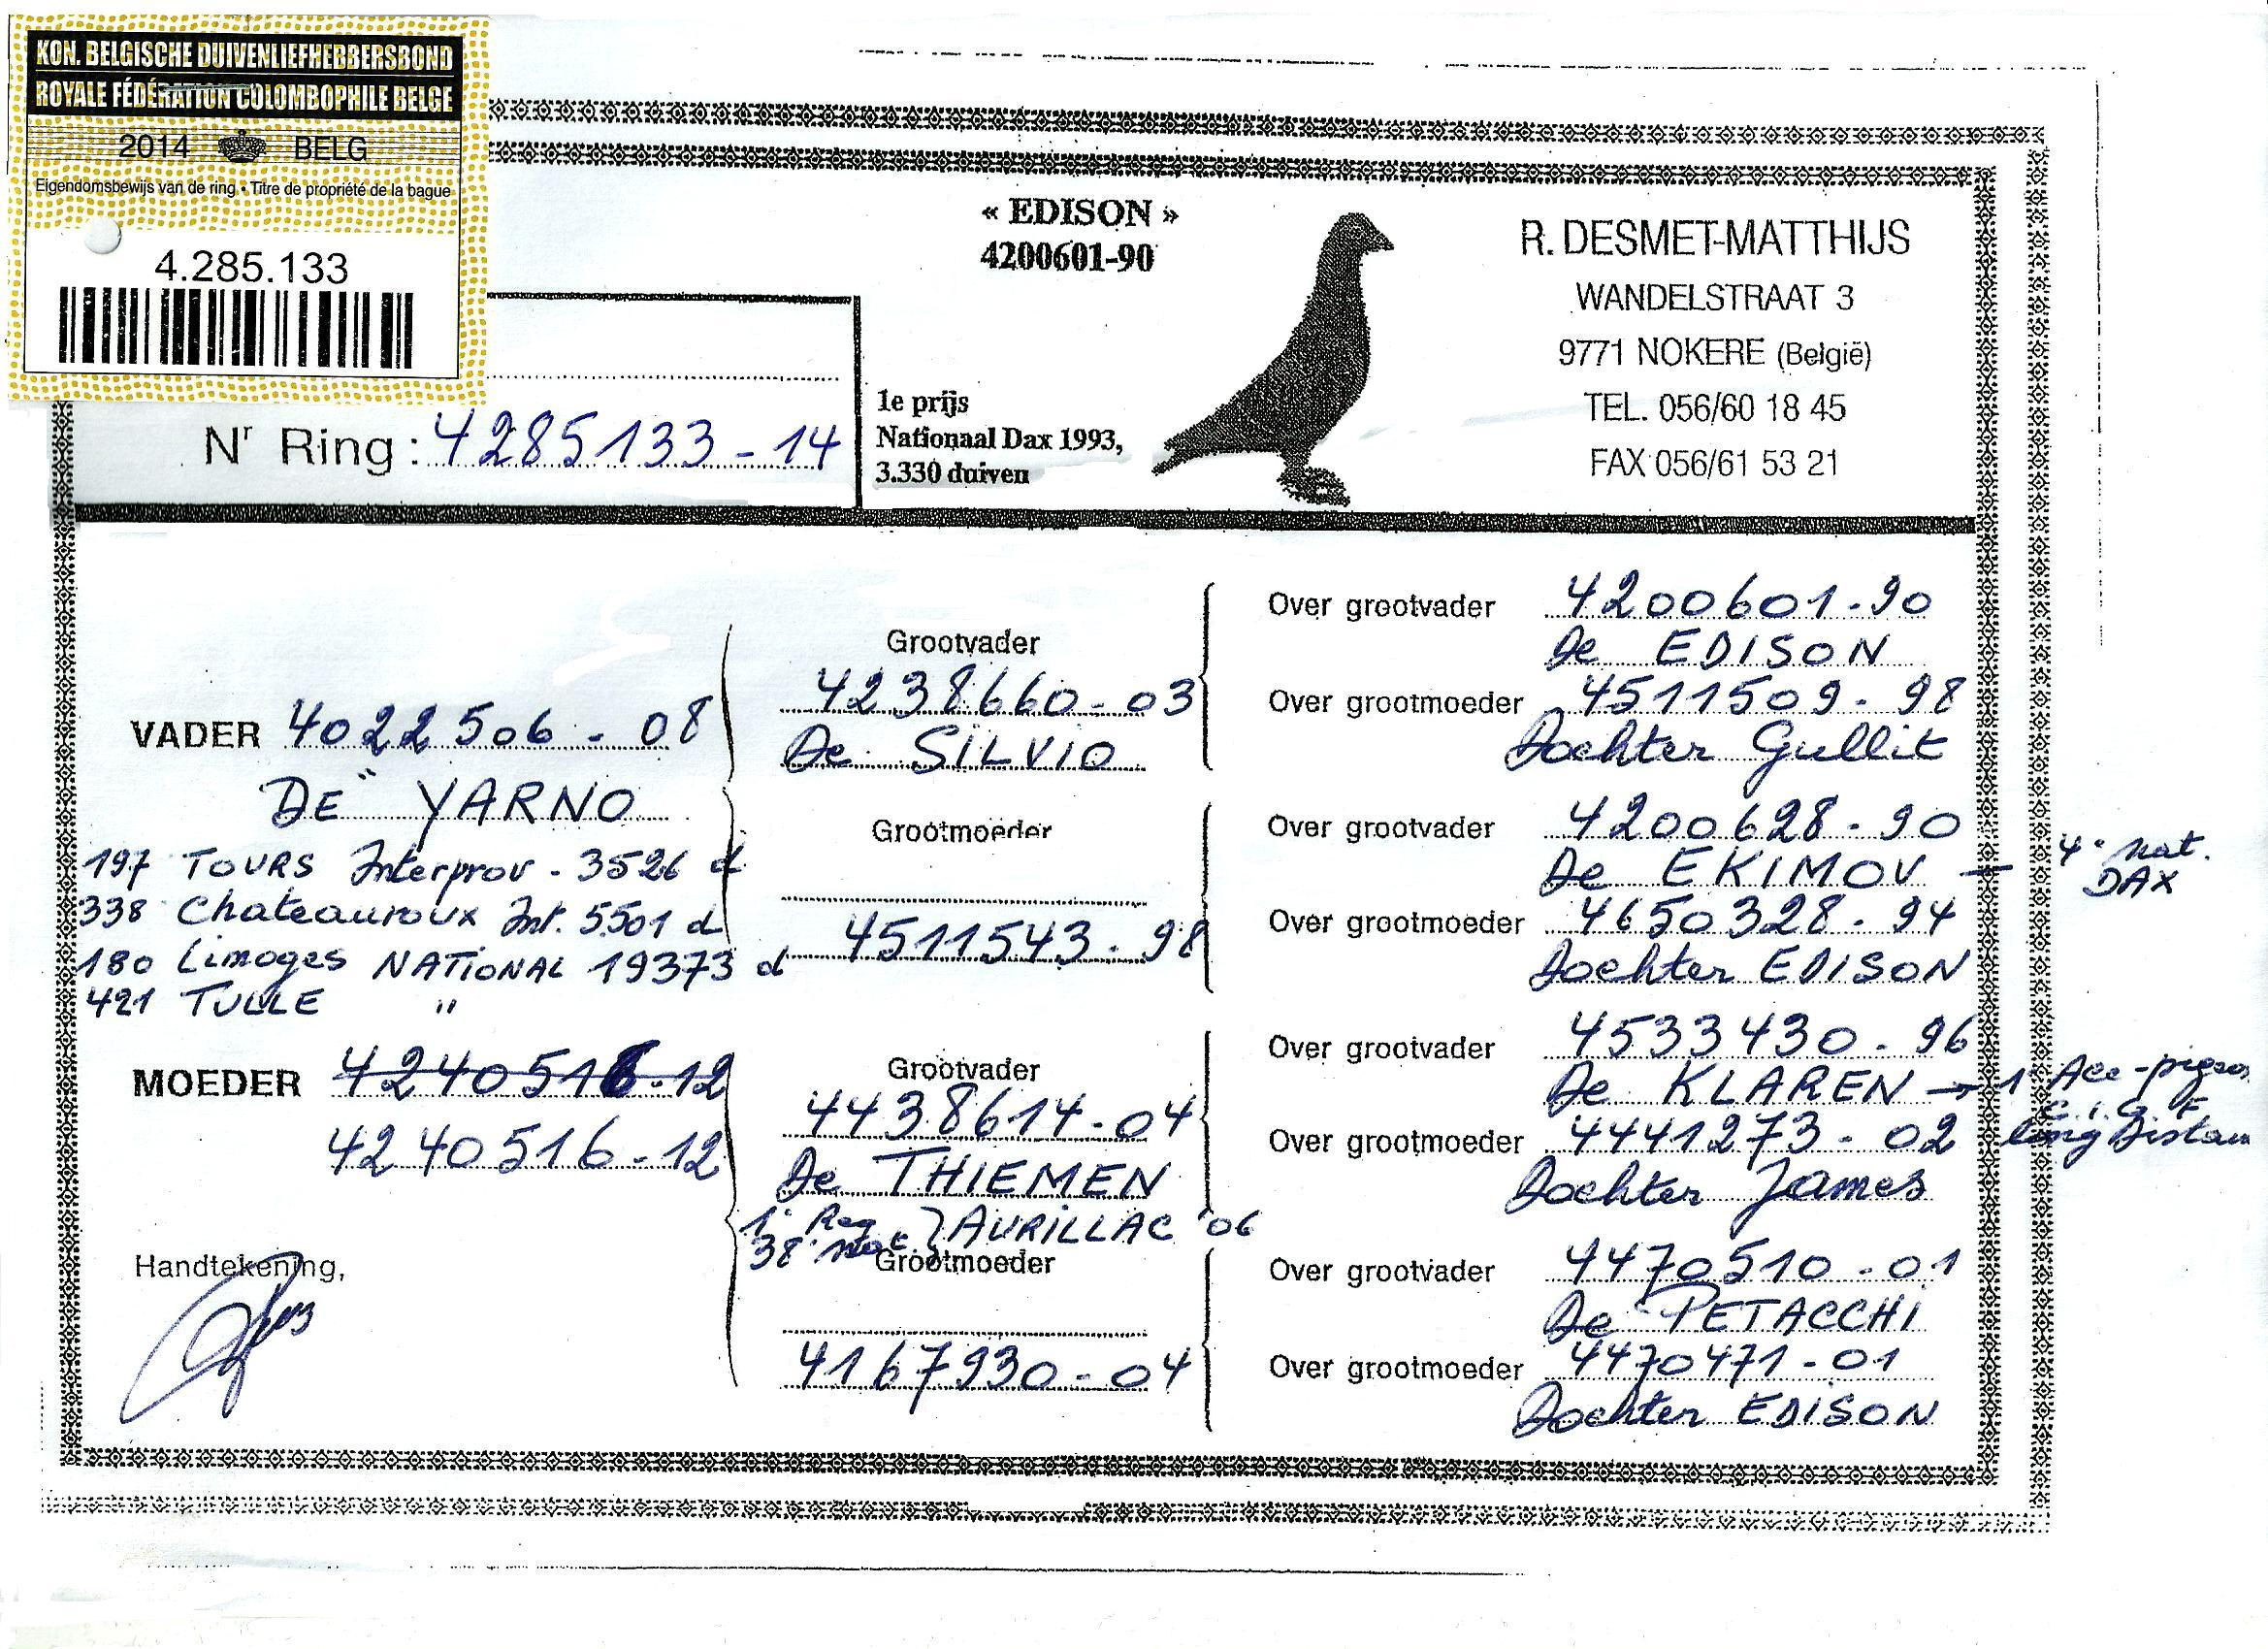 KON. BELGISCHE DUIVENLIEFHEBBERSBOND
ROYALE FÉDÉRATION COLOMBOPHILE BELGE
2014 BELG
Eigendomsbewijs van de ring • Titre de propriété de la bague
4.285.133
« EDISON »
4200601-90
1e prijs
Nationaal Dax 1993,
3.330 duiven
R. DESMET-MATTHIJS
WANDELSTRAAT 3
9771 NOKERE (België)
TEL. 056/60 18 45
FAX 056/61 53 21
Nr Ring : 4285133 - 14
VADER 4022506 - 08
DE YARNO
197 TOURS Interprov - 3526 d
338 Chateauroux Int. 5501 d
180 Limoges NATIONAL 19373 d
421 TULLE "
MOEDER 4240516-12
4240516-12
Handtekening,
Grootvader
4238660-03
De SILVIO
Grootmoeder
4511543-98
Grootvader
4438614-04
De THIEMEN
1° Reg
38° nat. } AURILLAC '06
Grootmoeder
4167930-04
Over grootvader 4200601-90
De EDISON
Over grootmoeder 4511509-98
Dochter Gullit
Over grootvader 4200628-90
De EKIMOV — 4° nat.
DAX
Over grootmoeder 4650328-94
Dochter EDISON
Over grootvader 4533430-96
De KLAREN → 1° Ace-pigeon
C.I.G.F
Over grootmoeder 4441273-02 long Distan
Dochter James
Over grootvader 4470510-01
De PETACCHI
Over grootmoeder 4470471-01
Dochter EDISON